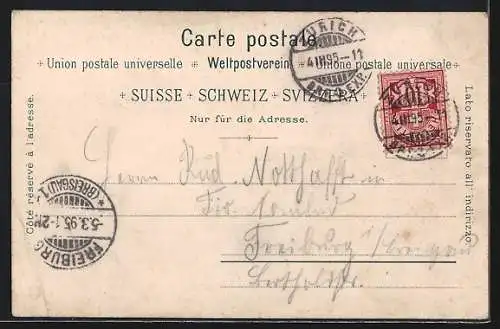 Carte postale
Union postale universelle Weltpostverein Unione postale universale
SUISSE SCHWEIZ SVIZZERA
Nur für die Adresse.
Côté réservé à l'adresse.
Lato riservato all' indirizzo.
ZÜRICH
4.III.95.–11
4.III.95.–
10
Herrn Rud. Notthafft
Freiburg i/Breisgau
Bertholdstr.
FREIBURG
5.3.95.1-2N
* (BREISGAU) 1